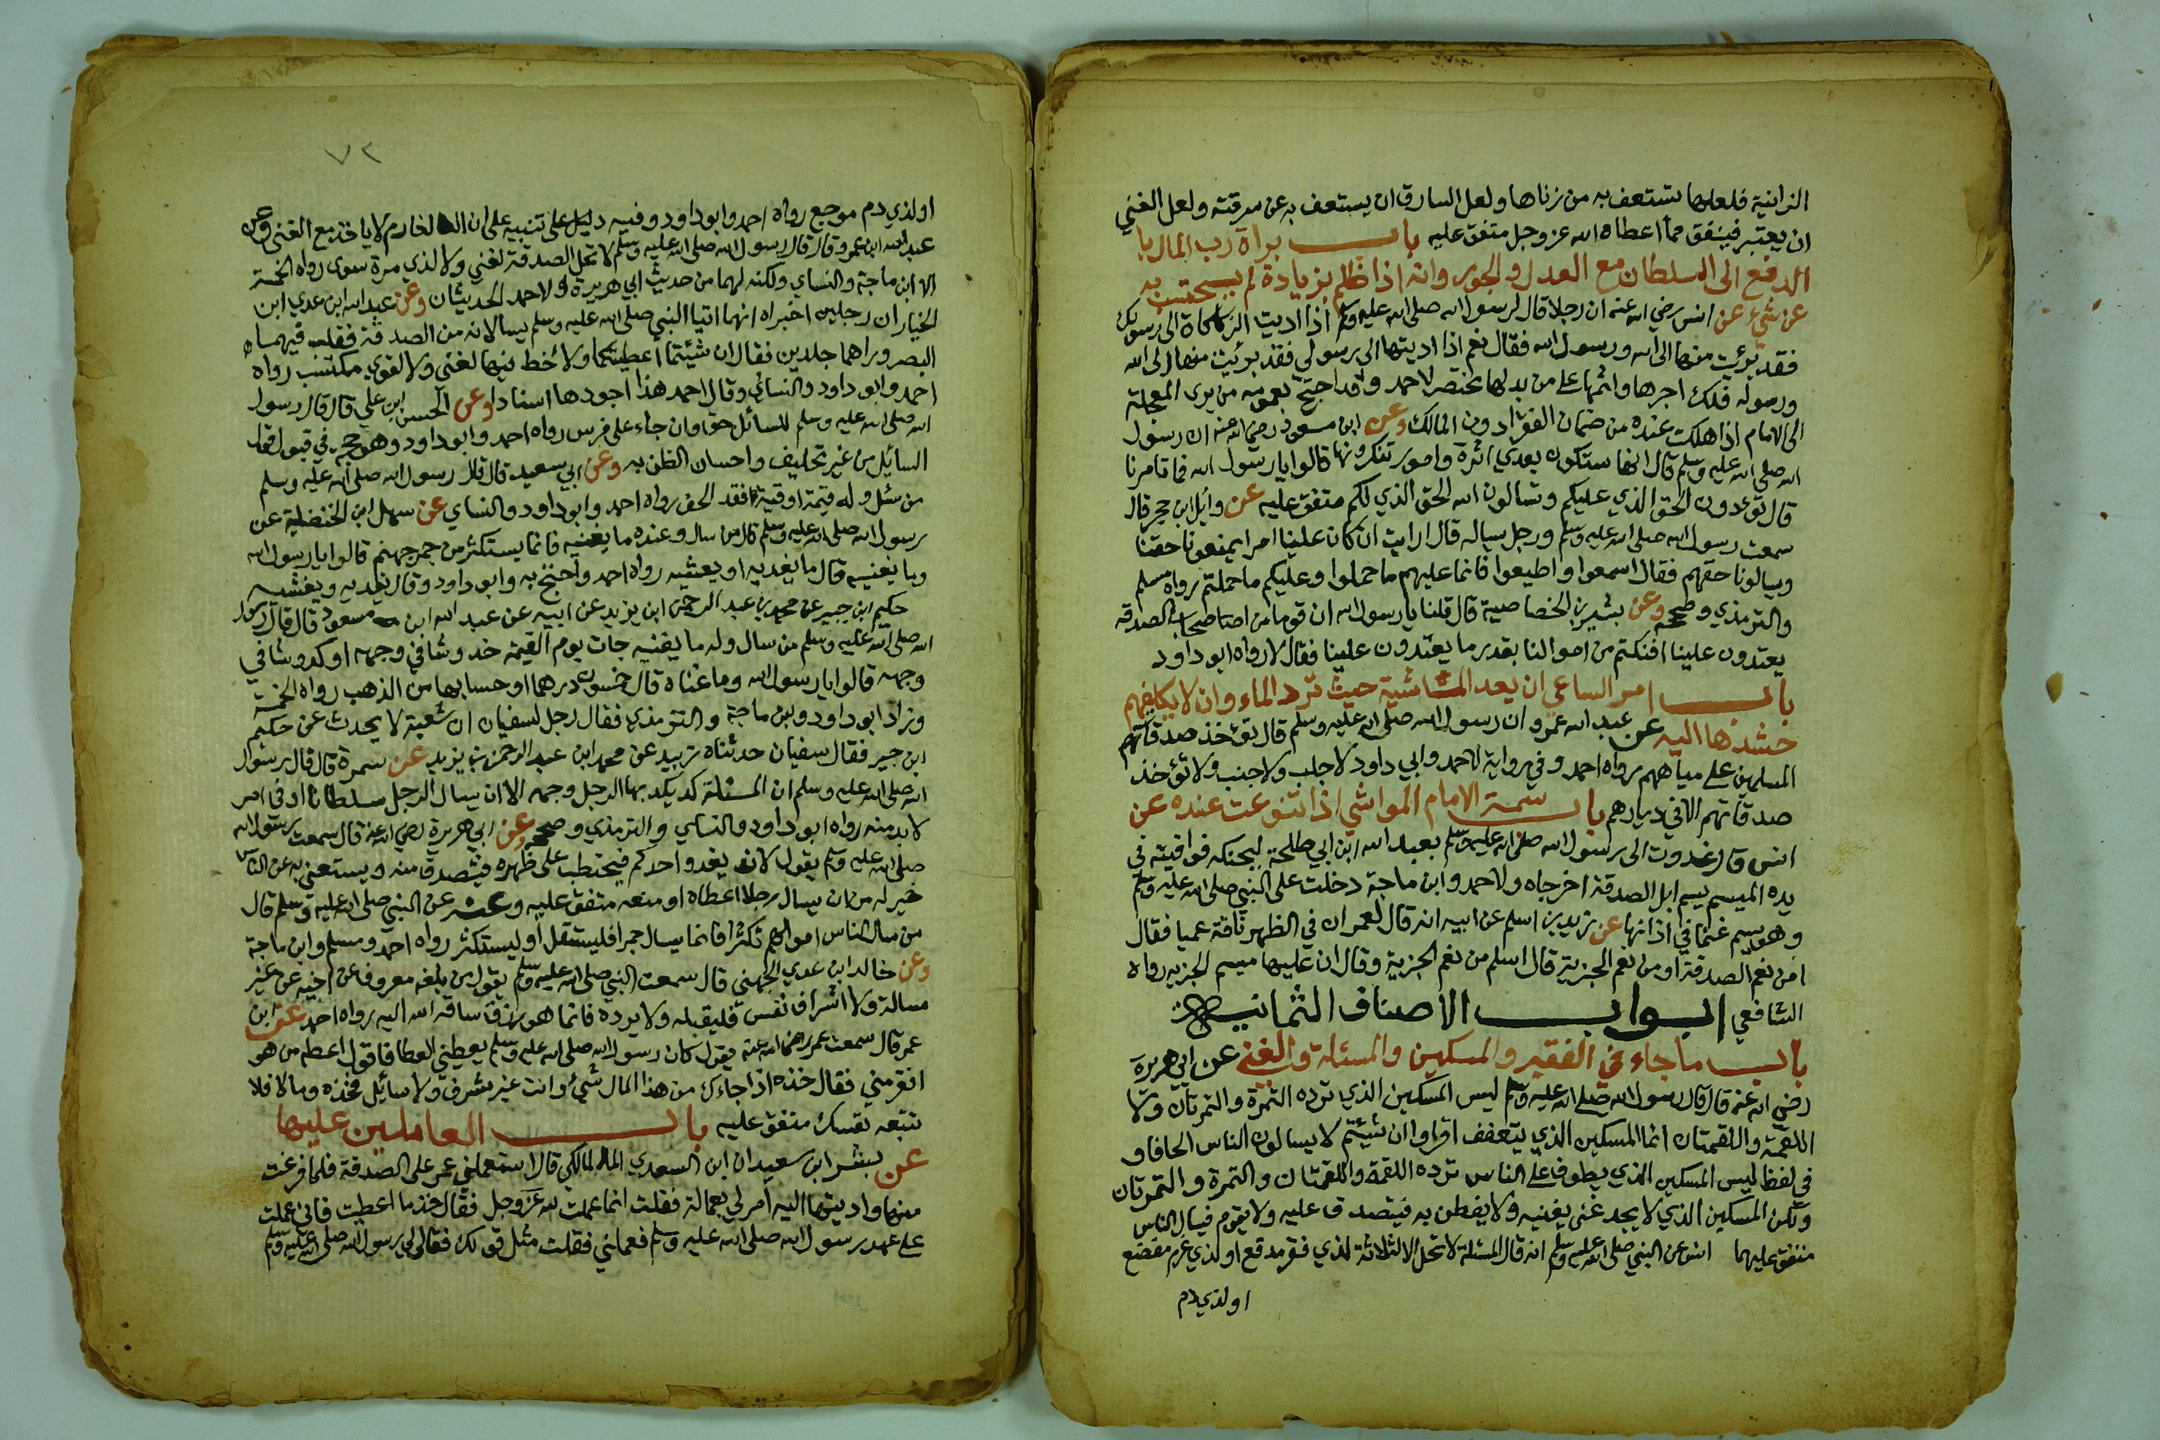 الزانية فلعلها تستعف به من زناها ولعل السارق ان يستعف به عن سرقته ولعل الغني
ان يعتبر فينفق مما أعطاه الله عز وجل متفق عليه باب براة رب المال با
الدفع الى السلطان مع العدل والجور وانه اذا ظلم بزيادة لم يحتسب به
عن شيء عن انس رضي الله عنه ان رجلا قال لرسول الله صلى الله عليه وسلم اذا اديت الزكاة الى رسولك
فقد برئت منها الى الله ورسول الله فقال نعم اذا اديتها الى رسولي فقد برئت منها الى الله
ورسوله فلك اجرها واثمها على من بدلها مختصر لاحمد وقد احتج بعمومه من يرى المعجلة
الى الامام اذا هلكت عنده من ضمان الفقراء دون المالك وعن ابن مسعود رضي الله عنه ان رسول
الله صلى الله عليه وسلم قال انها ستكون بعدي اثرة وامور تنكرونها قالوا يا رسول الله فما تامرنا
قال تؤدون الحق الذي عليكم وتسالون الله الحق الذي لكم متفق عليه عن وائل ابن حجر قال
سمعت رسول الله صلى الله عليه وسلم ورجل يساله قال ارايت ان كان علينا امرا يمنعونا حقنا
ويسالونا حقهم فقال اسمعوا واطيعوا فانما عليهم ما حملوا وعليكم ما حملتم رواه مسلم
والترمذي وصححه وعن بشير بن الخصاصية قال قلنا يا رسول الله ان قوما من اصحاب الصدقه
يعتدون علينا افنكتم من اموالنا بقدر ما يعتدون علينا فقال لا رواه ابو داود
باب امر الساعي ان يعد الماشية حيث ترد الماء وان لا يكلفهم
حشدها اليه عن عبد الله عمرو ان رسول الله صلى الله عليه وسلم قال تؤخذ صدقاتهم
المسلمين على مياههم رواه احمد وفي رواية لاحمد وابي داود لا جلب ولا جنب ولا تؤخذ
صدقاتهم الا في ديارهم باب سمة الامام المواشي اذا تنوعت عنده عن
انس قال غدوت الى رسول الله صلى الله عليه وسلم بعبد الله ابن ابي طلحة ليحنكه فوافيته في
يده الميسم يسم ابل الصدقة اخرجاه ولاحمد وابن ماجة دخلت على النبي صلى الله عليه وسلم
وهو يسم غنما في اذانها عن زيد بن اسلم عن ابيه انه قال لعمر ان في الظهر ناقة عميا فقال
امن نعم الصدقة او من نعم الجزية قال اسلم من نعم الجزية وقال ان عليها ميسم الجزيه رواه
الشافعي ابواب الاصناف الثمانيه
باب ما جاء في الفقير والمسكين والمسئلة والغني عن ابي هريرة
رضي الله عنه قال قال رسول الله صلى الله عليه وسلم ليس المسكين الذي ترده التمرة والتمرتان ولا
اللقمة واللقمتان انما المسكين الذي يتعفف اقراوا ان شيئتم لا يسالون الناس الحافا و
في لفظ ليس المسكين الذي يطوف على الناس ترده اللقمة واللقمتان والتمرة والتمرتان
ولكن المسكين الذي لا يجد غنى يغنيه ولا يفطن به فيتصدق عليه ولا يقوم فيسال الناس
متفق عليهما انس عن النبي صلى الله عليه وسلم انه قال المسئلة لا تحل الا لثلاثة لذي فقر مدقع او لذي غرم مفضع
او لذي دم
٧٢
او لذي دم موجع رواه احمد وابو داود وفيه دليل على تنبيه على ان الغارم لا ياخذ مع الغنى وعن
عبد الله ابن عمرو قال قال رسول الله صلى الله عليه وسلم لا تحل الصدقة لغني ولا لذي مرة سوى رواه الخمسة
الا ابن ماجة والنساي ولكنه لهما من حديث ابي هريرة ولاحمد الحديثان وعن عبد الله ابن عدي ابن
الخيار ان رجلين اخبراه انهما اتيا النبي صلى الله عليه وسلم يسالانه من الصدقة فقلب فيهما
البصر وراهما جلدين فقال ان شيئتما أعطيتكما ولا حظ فيها لغني ولا لقوي مكتسب رواه
احمد وابو داود والنسائي وقال احمد هذا اجودها اسنادا وعن الحسن ابن علي قال قال رسول
الله صلى الله عليه وسلم للسائل حق وان جاء على فرس رواه احمد وابو داود وهو حجة في قبول قول
السايل من غير تحليف واحسان الظن به وعن ابي سعيد قال قال رسول الله صلى الله عليه وسلم
من سئل وله قيمة اوقية فقد الحف رواه احمد وابو داود والنساي عن سهل ابن الحنضلية عن
رسول الله صلى الله عليه وسلم قال من سال وعنده ما يغنيه فانما يستكثر من جمر جهنم قالوا يا رسول الله
وما يغنيه قال ما يغديه او يعشيه رواه احمد واحتج به وابو داود وقال يغديه ويعشيه
حكيم ابن جبير عن محمد بن عبد الرحمن ابن يزيد عن ابيه عن عبد الله ابن مسعود قال قال رسول
الله صلى الله عليه وسلم من سال وله ما يغنيه جات يوم القيمة خدوشا في وجهه او كدوشا في
وجهه قالوا يا رسول الله وما غناه قال خمسون درهما او حسابها من الذهب رواه الخمسة
وزاد ابو داود وابن ماجة والترمذي فقال رجل لسفيان ان شعبة لا يحدث عن حكيم
ابن جبير فقال سفيان حدثناه زبيد عن محمد ابن عبد الرحمن بن يزيد عن سمرة قال قال رسول
الله صلى الله عليه وسلم ان المسئلة كد يكد بها الرجل وجهه الا ان يسال الرجل سلطانا او في امر
لا بد منه رواه ابو داود والنساي والترمذي وصححه وعن ابي هريرة رضي الله عنه قال سمعت رسول الله
صلى الله عليه وسلم يقول لان يغدو احدكم فيحتطب على ظهره فيتصدق منه ويستغني به عن الناس
خير له من ان يسال رجلا اعطاه او منعه متفق عليه وعنه عن النبي صلى الله عليه وسلم قال
من سال الناس اموالهم تكثرا فانما يسال جمرا فليستقل او ليستكثر رواه احمد ومسلم وابن ماجة
وعن خالد ابن عدي الجهني قال سمعت النبي صلى الله عليه وسلم يقول من بلغه معروف عن اخيه عن غير
مسالة ولا اشراف نفس فليقبله ولا يرده فانما هو رزق ساقه الله اليه رواه احمد عن ابن
عمر قال سمعت عمر رضي الله عنه يقول كان رسول الله صلى الله عليه وسلم يعطيني العطا فاقول اعطه من هو
افقر مني فقال خذه اذا جاءك من هذا المال شئ وانت غير مشرف ولا سائل فخذه وما لا فلا
تتبعه نفسك متفق عليه باب العاملين عليها
عن بشر ابن سعيد ان ابن السعدي المالكي قال استعملني عمر على الصدقة فلما فرغت
منها واديتها اليه أمر لي بعمالة فقلت انما عملت لله عز وجل فقال خذ ما اعطيت فاني عملت
على عهد رسول الله صلى الله عليه وسلم فعملني فقلت مثل قولك فقال لي رسول الله صلى الله عليه وسلم